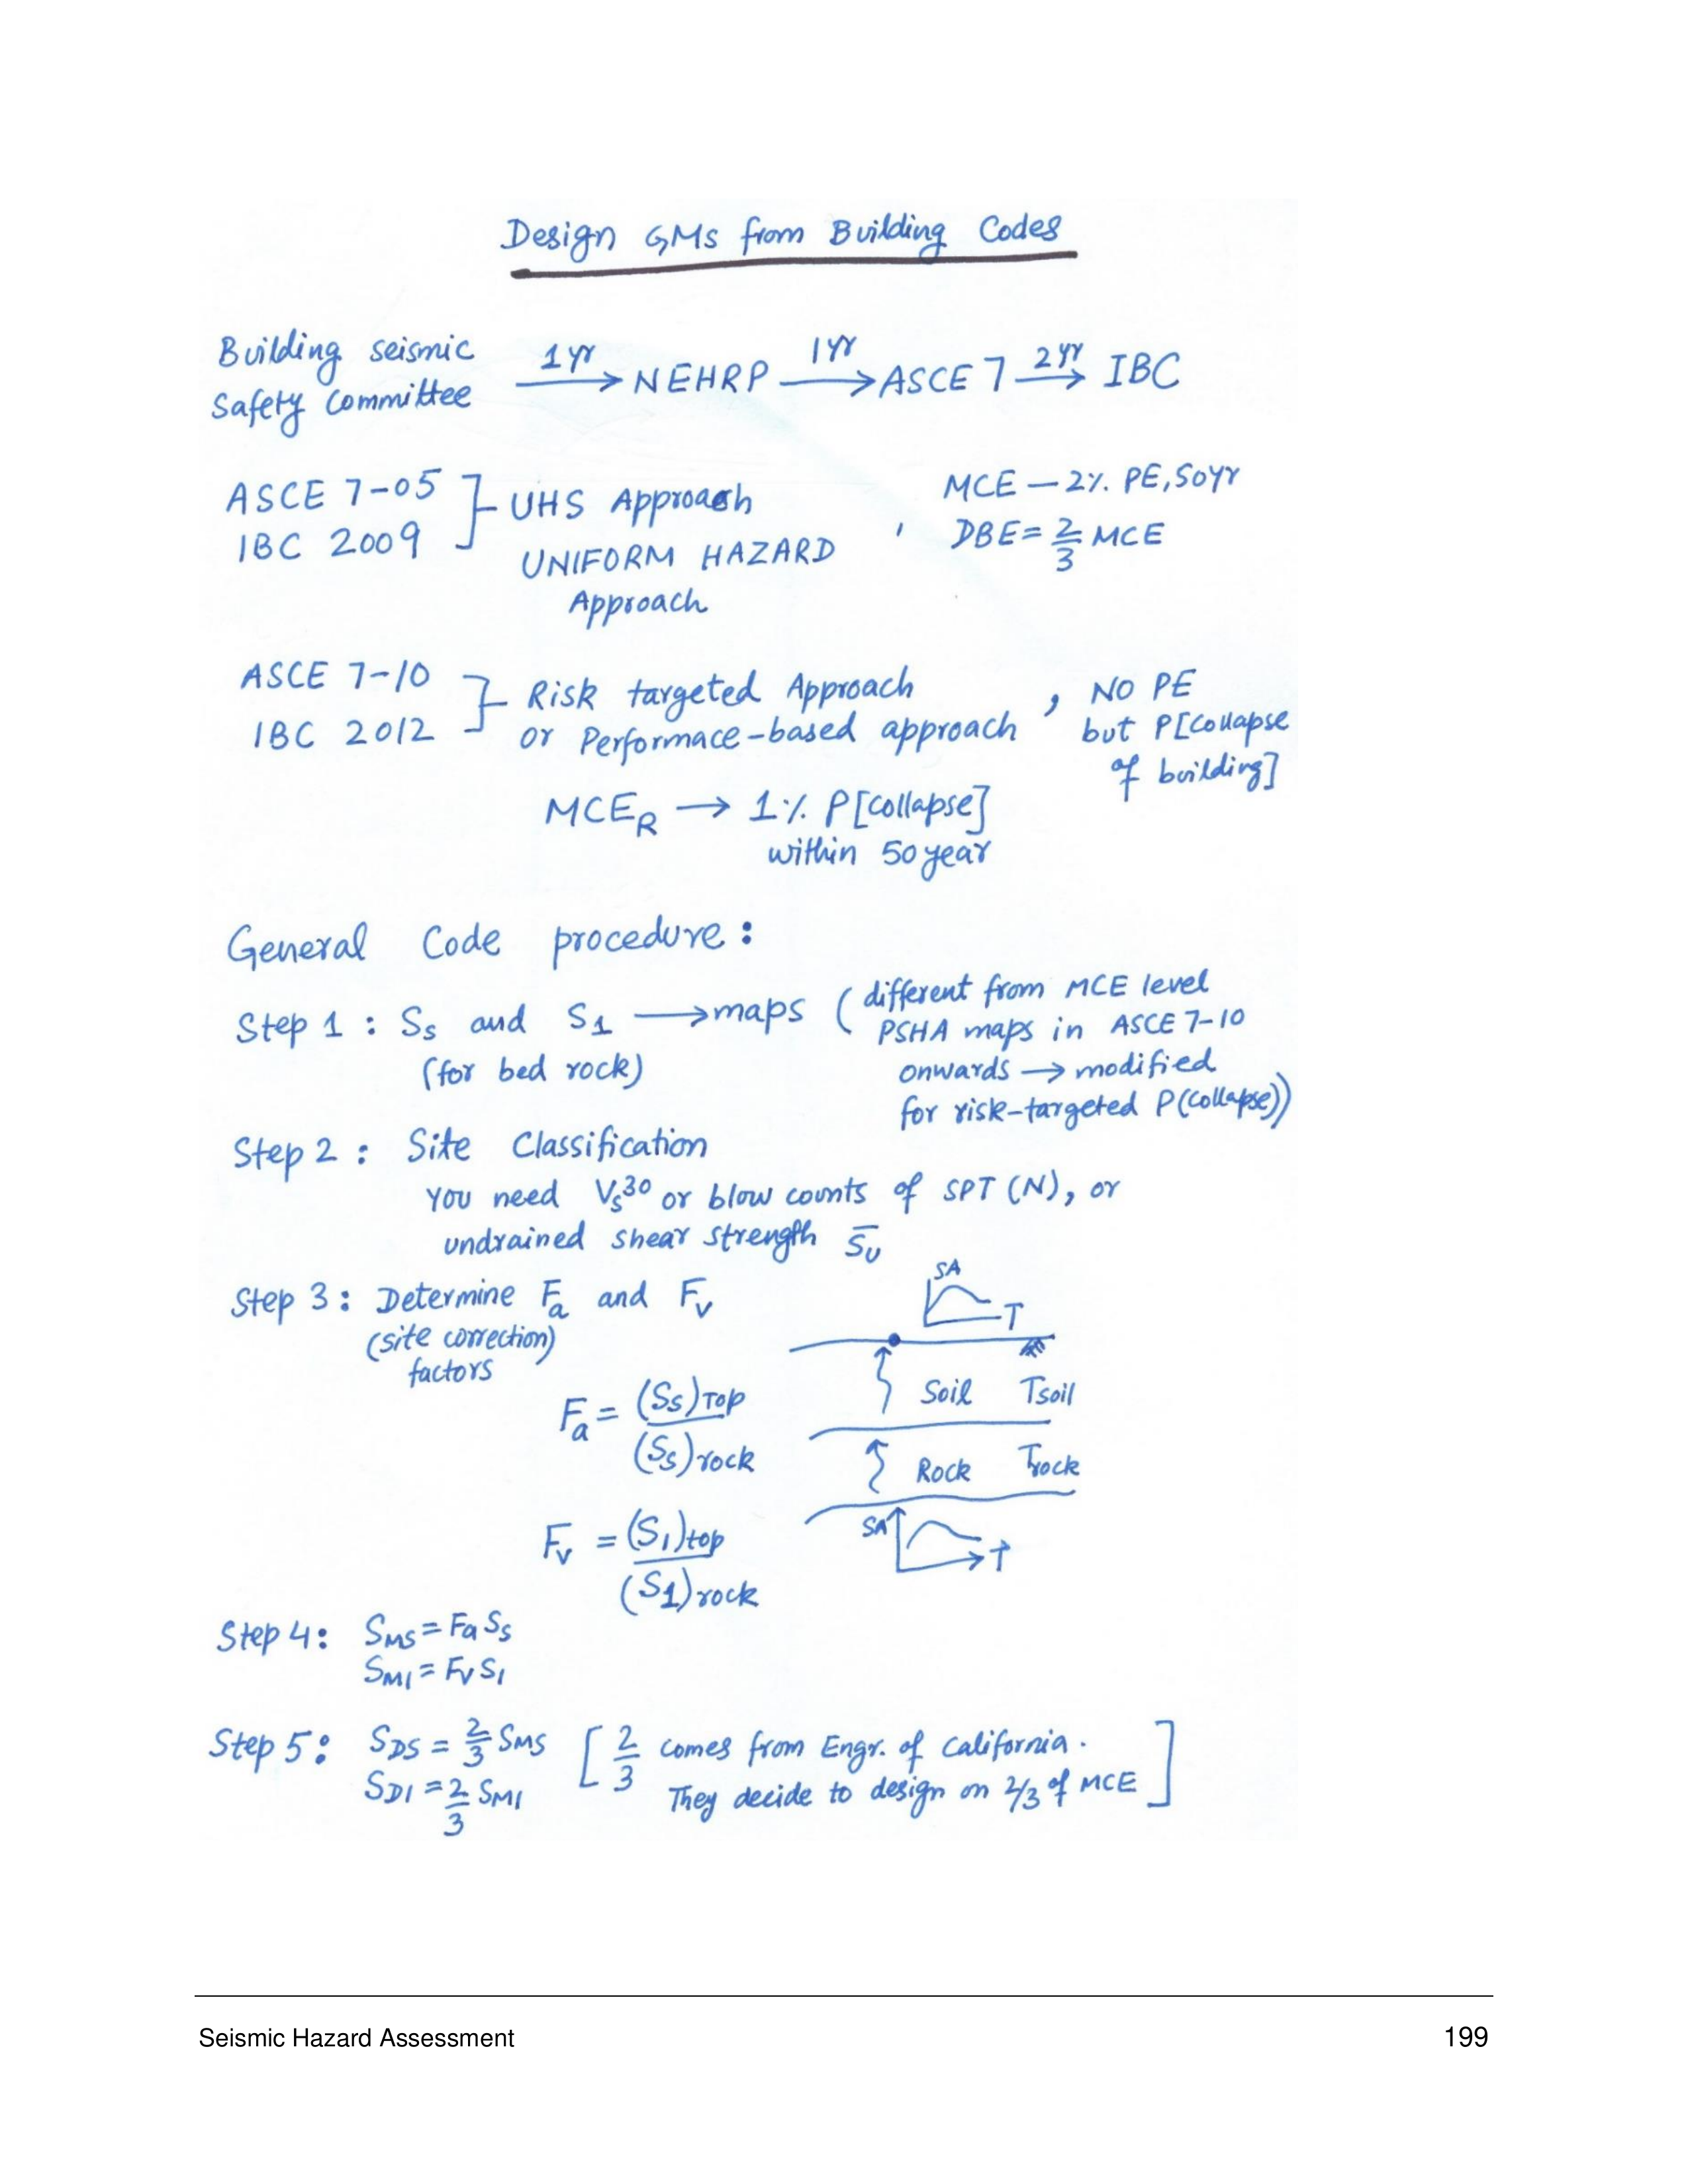 Design GMs from Building Codes
Building seismic
Safety Committee
1 yr → NEHRP 1 yr → ASCE 7 2 yr → IBC
ASCE 7-05
IBC 2009
UHS Approach
UNIFORM HAZARD
Approach
, MCE — 2% PE, 50yr
DBE = 2/3 MCE
ASCE 7-10
IBC 2012
Risk targeted Approach
or Performace-based approach
, NO PE
but P[collapse
of building]
MCE_R → 1% P[collapse]
within 50 year
General Code procedure:
Step 1 : Ss and S1 → maps
(for bed rock)
(different from MCE level
PSHA maps in ASCE 7-10
onwards → modified
for risk-targeted P(collapse))
Step 2 : Site Classification
You need Vs30 or blow counts of SPT (N), or
undrained shear strength S̅u
Step 3 : Determine Fa and Fv
(site correction)
factors
Fa = (Ss)Top / (Ss)rock
Fv = (S1)top / (S1)rock
SA
T
Soil Tsoil
Rock Trock
SA
T
Step 4: SMS = Fa Ss
SM1 = Fv S1
Step 5: SDS = 2/3 SMS
SD1 = 2/3 SM1
[2/3 comes from Engr. of California.
They decide to design on 2/3 of MCE]
Seismic Hazard Assessment 199